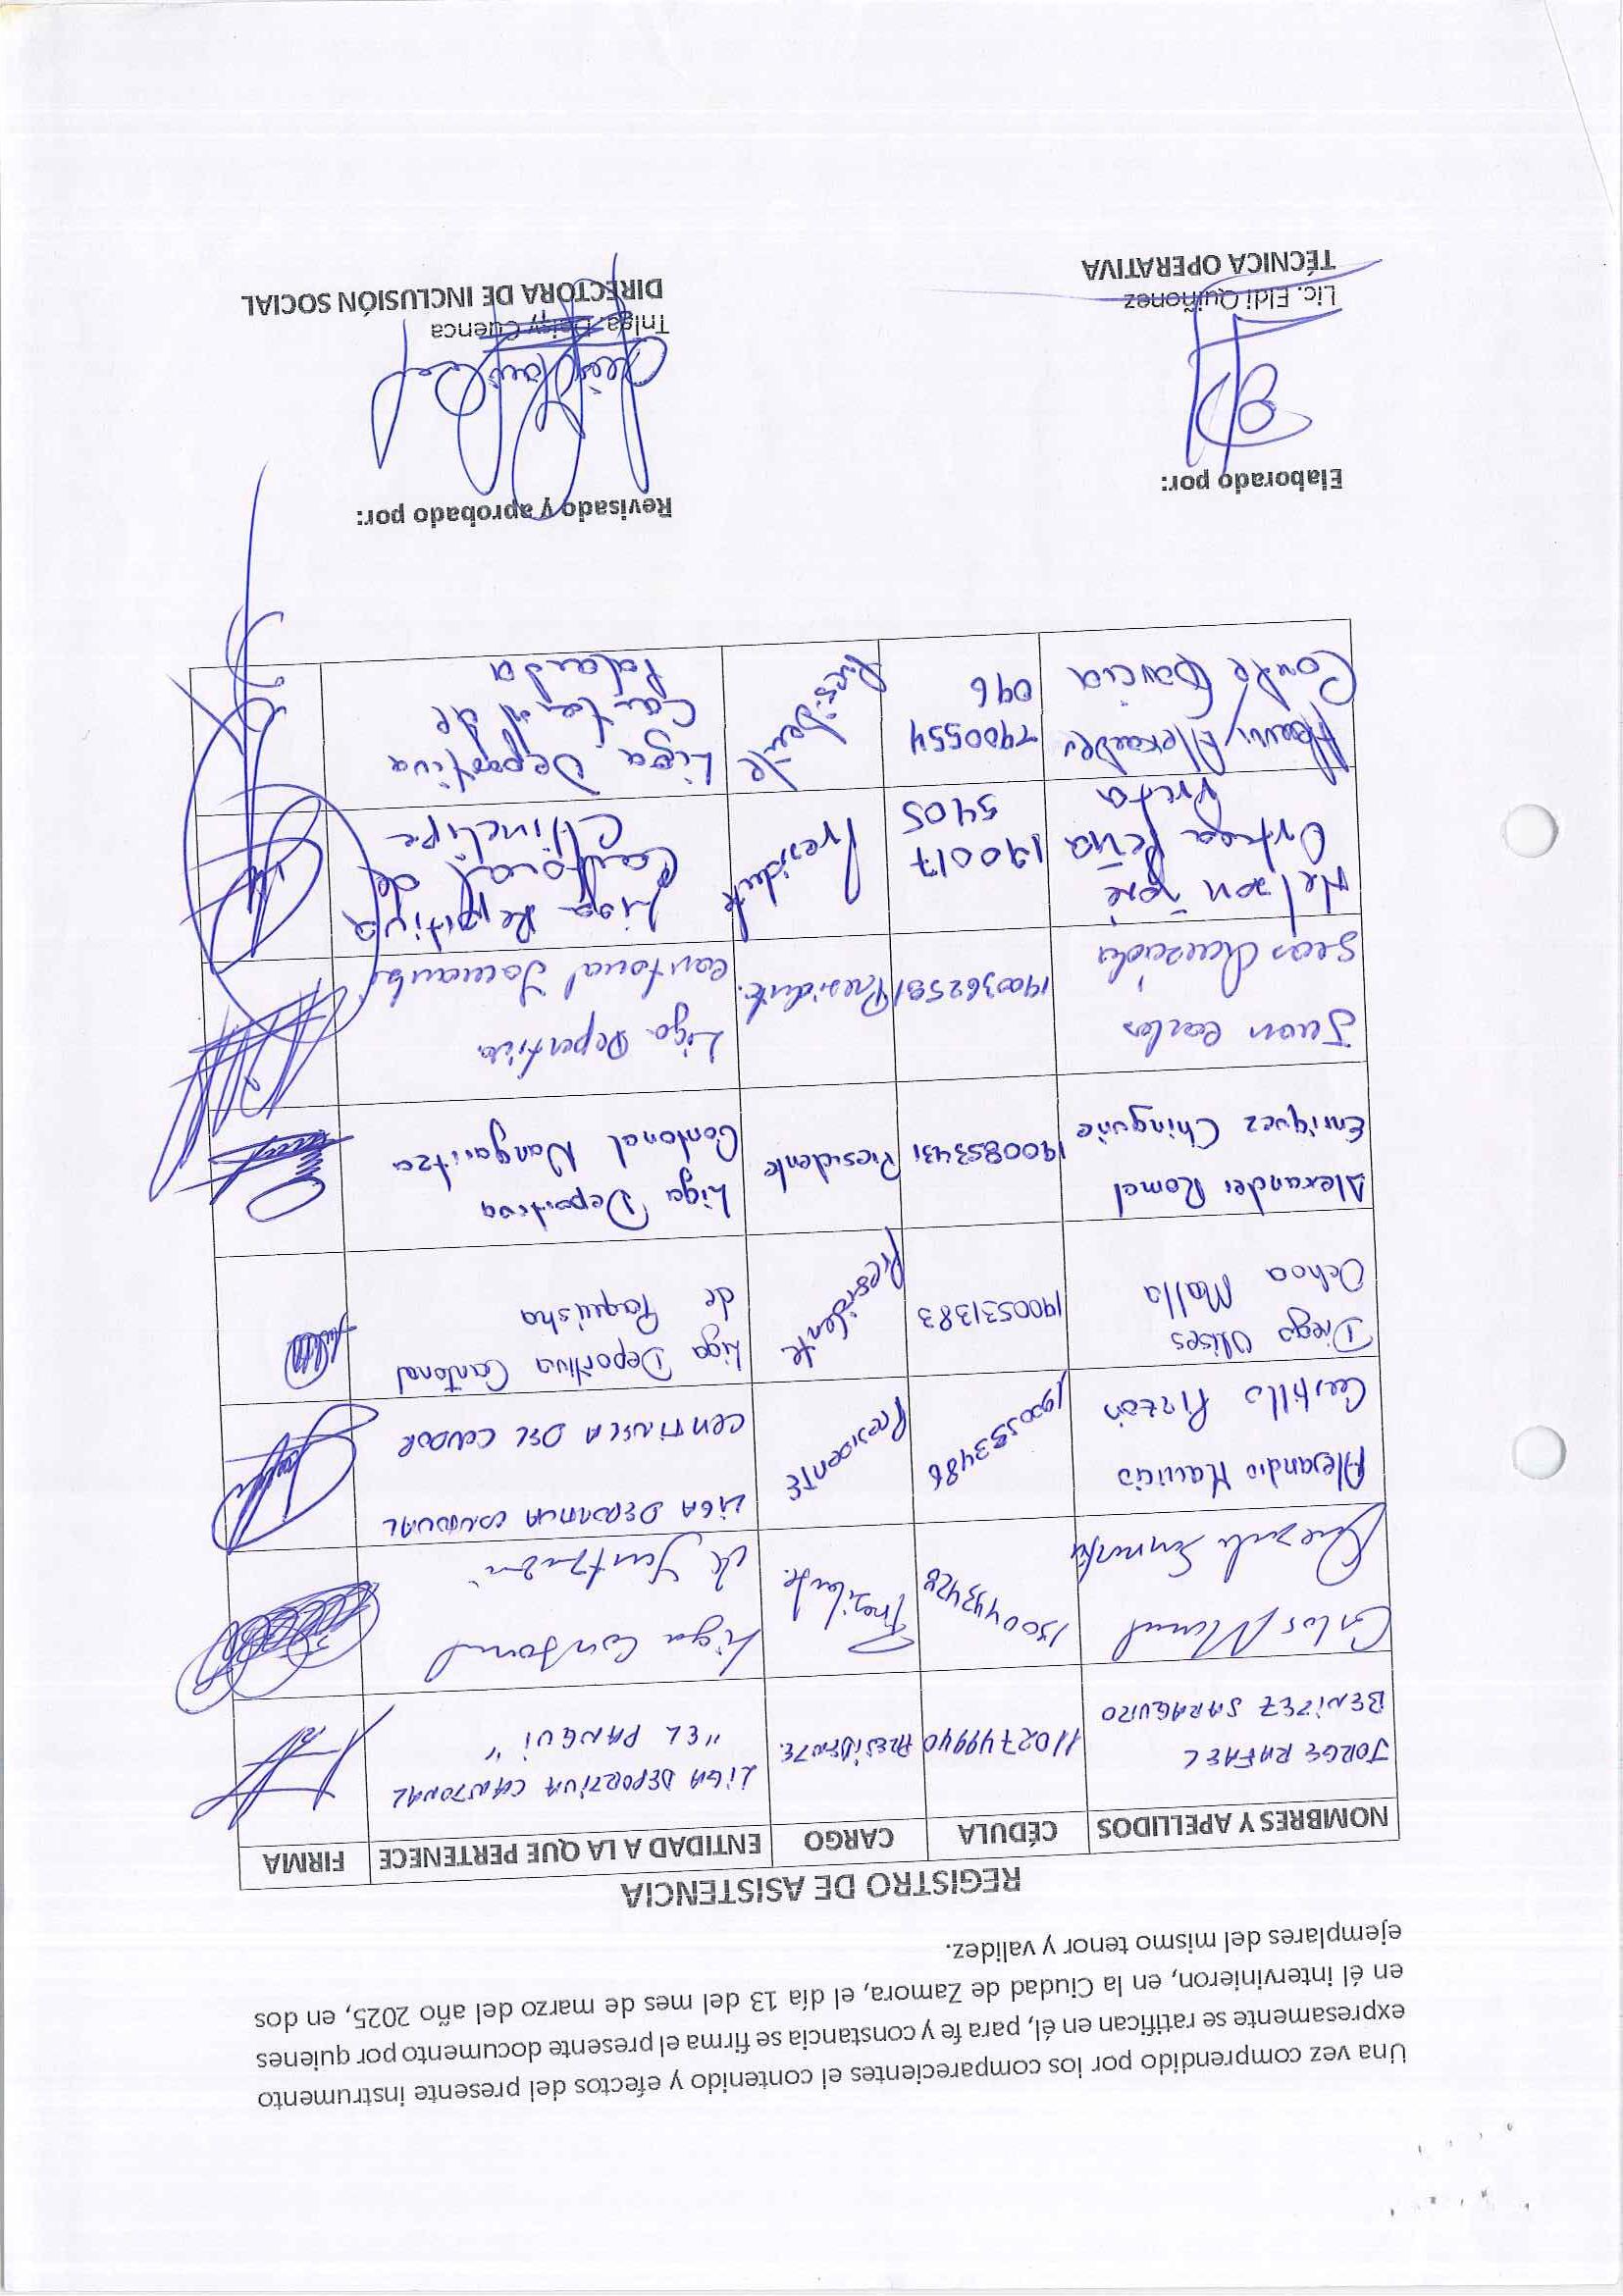 Una vez comprendido por los comparecientes el contenido y efectos del presente instrumento
expresamente se ratifican en él, para fe y constancia se firma el presente documento por quienes
en él intervinieron, en la Ciudad de Zamora, el día 13 del mes de marzo del año 2025, en dos
ejemplares del mismo tenor y validez.
REGISTRO DE ASISTENCIA
NOMBRES Y APELLIDOS CÉDULA CARGO ENTIDAD A LA QUE PERTENECE FIRMA
JORGE RAFAEL
BENITEZ SARAGURO
1102749940
PRESIDENTE.
LIGA DEPORTIVA CANTONAL
"EL PANGUI"
Carlos Manuel
Presidente.
Liga Cantonal
de Yantzaza
Alejandro Mauricio
Castillo Pinzón
1900593486
PRESIDENTE
LIGA DEPORTIVA CANTONAL
CENTINELA DEL CONDOR
Diego Ulises
Ochoa Malla
1900531383
Presidente
Liga Deportiva Cantonal
de Paquisha
Alexander Romel
Enriquez Chinguñe
1900853431
Presidente
Liga Deportiva
Cantonal Nangaritza
Juan Carlos
1900362581
Presidente.
Liga Deportiva
Cantonal Yacuambi
Nelson José
Ortega Peña
190017
5405
Presidente
Liga Deportiva
Cantonal de
Chinchipe
Conde García
1900554
046
Presidente
Liga Deportiva
Cantonal de
Palanda
Elaborado por:
Lic. Eldi Quiñonez
TÉCNICA OPERATIVA
Revisado y aprobado por:
Tnlga. Deisy Cuenca
DIRECTORA DE INCLUSIÓN SOCIAL